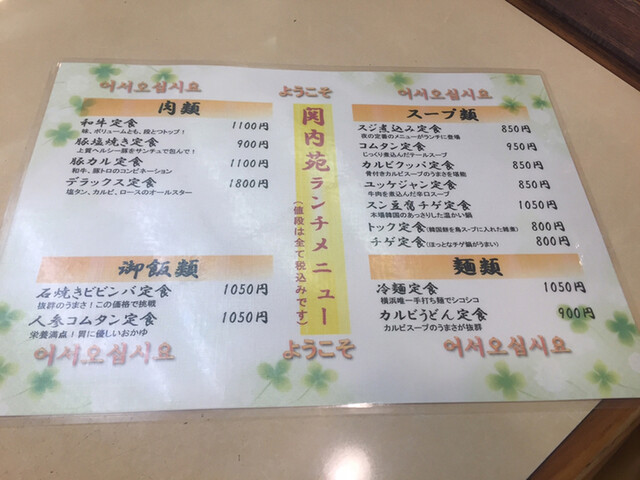 어서오십시요
ようこそ
어서오십시요
肉類
和牛定食 1100円
味、ボリュームとも、段とつトップ!
豚塩焼き定食 900円
上質ヘルシー豚をサンチュで包んで!
豚カル定食 1100円
和牛、豚トロのコンビネーション
デラックス定食 1800円
塩タン、カルビ、ロースのオールスター
御飯類
石焼きビビンバ定食 1050円
抜群のうまさ!この価格で挑戦
人参コムタン定食 1050円
栄養満点!胃に優しいおかゆ
関内苑ランチメニュー
(値段は全て税込みです)
スープ類
スジ煮込み定食 850円
夜の定番のメニューがランチに登場
コムタン定食 950円
じっくり煮込んだテールスープ
カルビクッパ定食 850円
骨付きカルビスープのうまさを堪能
ユッケジャン定食 850円
牛肉を煮込んだ辛口スープ
スン豆腐チゲ定食 1050円
本場韓国のあっさりした温かい鍋
トック定食(韓国餅を鳥スープに入れた雑煮) 800円
チゲ定食(ほっとなチゲ鍋がうまい) 800円
麺類
冷麺定食 1050円
横浜唯一手打ち麺でシコシコ
カルビうどん定食 900円
カルビスープのうまさが抜群
어서오십시요
ようこそ
어서오십시요